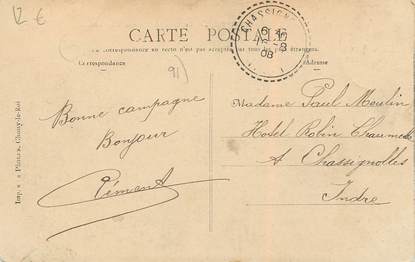 12 €
CHASSIGN
CARTE POSTALE
6
8
08
La correspondance au recto n'est pas acceptée par tous les pays étrangers.
Correspondance
Adresse
91)
Bonne campagne
Bonjour
Clément
Madame Paul Moulin
Hotel Robin Chaumette
A Chassignolles
Indre
Choisy-le-Roi